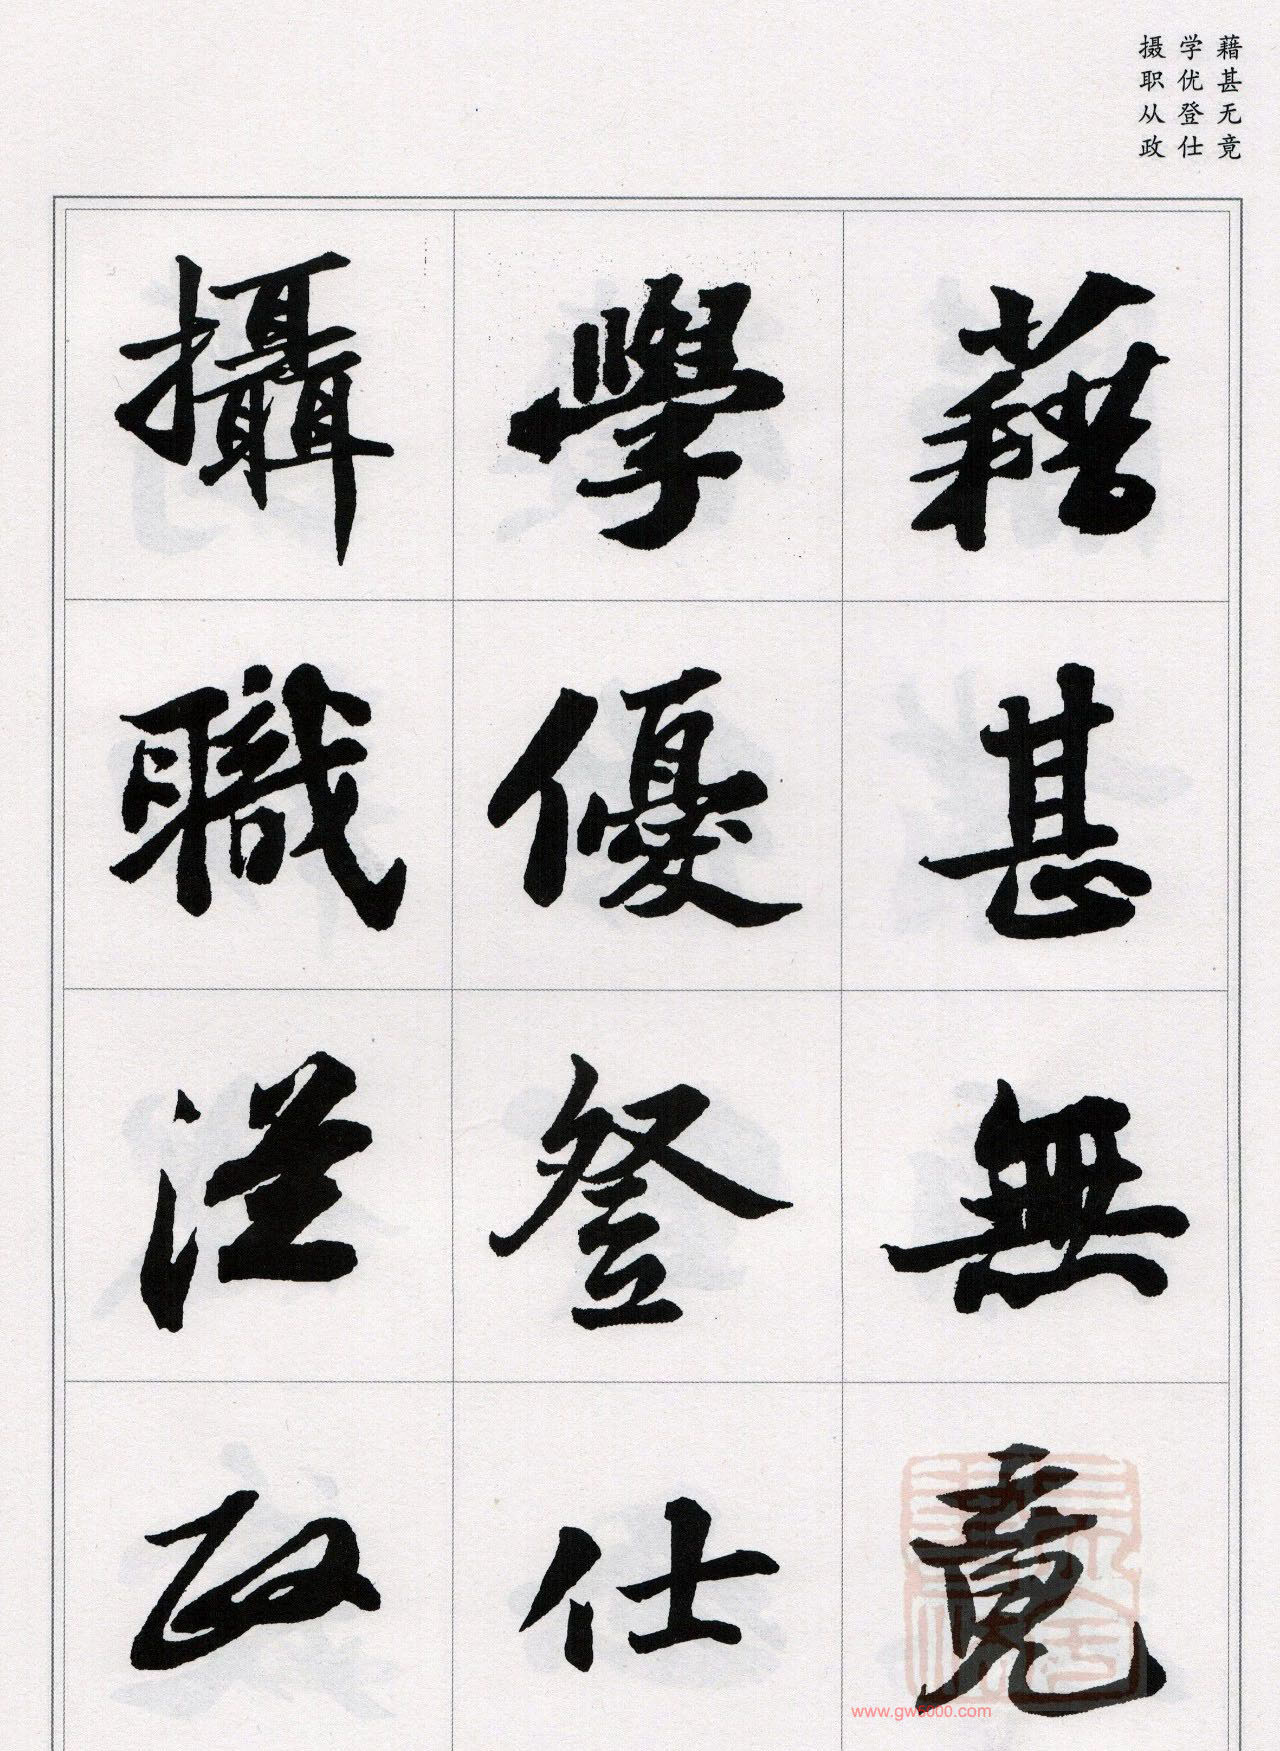 藉甚无竟
学优登仕
摄职从政
藉甚無竟
學優登仕
攝職從政
www.gw5000.com